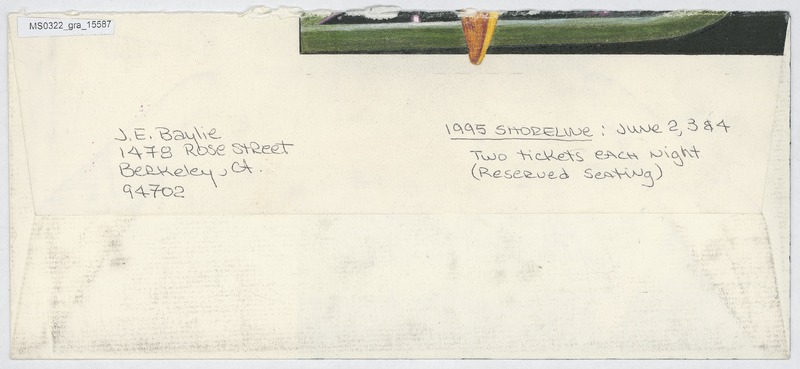 MS0322_gra_15587
J.E. Baylie
1478 Rose Street
Berkeley, CA.
94702
1995 SHORELINE: JUNE 2, 3 & 4
Two tickets each Night
(Reserved Seating)